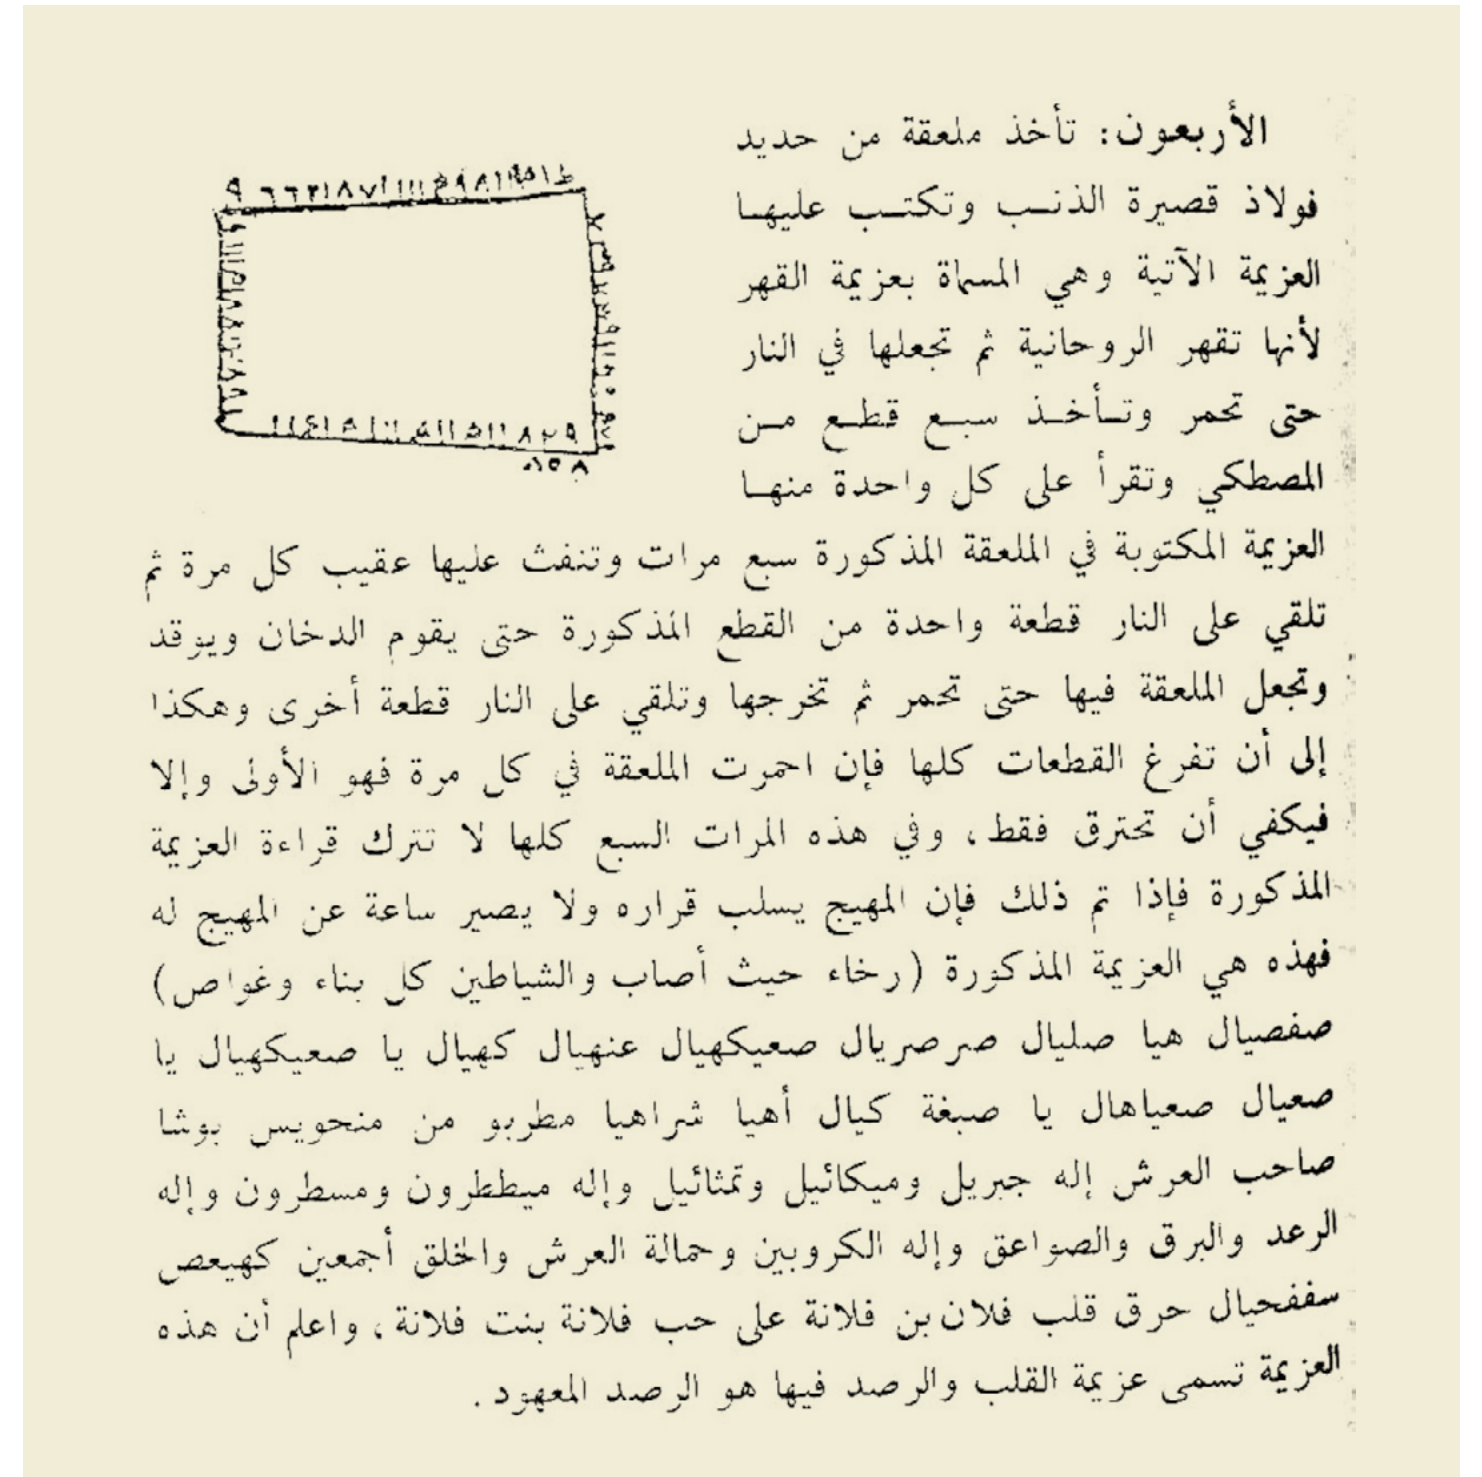 الأربعون: تأخذ ملعقة من حديد
فولاذ قصيرة الذنب وتكتب عليها
العزيمة الآتية وهي المسماة بعزيمة القهر
لأنها تقهر الروحانية ثم تجعلها في النار
حتى تحمر وتأخذ سبع قطع من
المصطكي وتقرأ على كل واحدة منها
العزيمة المكتوبة في الملعقة المذكورة سبع مرات وتنفث عليها عقيب كل مرة ثم
تلقي على النار قطعة واحدة من القطع المذكورة حتى يقوم الدخان ويوقد
وتجعل الملعقة فيها حتى تحمر ثم تخرجها وتلقي على النار قطعة أخرى وهكذا
إلى أن تفرغ القطعات كلها فإن احمرت الملعقة في كل مرة فهو الأولى وإلا
فيكفي أن تحترق فقط، وفي هذه المرات السبع كلها لا تترك قراءة العزيمة
المذكورة فإذا تم ذلك فإن المهيج يسلب قراره ولا يصير ساعة عن المهيج له
فهذه هي العزيمة المذكورة (رخاء حيث أصاب والشياطين كل بناء وغواص)
صفصيال هيا صليال صرصريال صعيكهيال عنهيال كهيال يا صعيكهيال يا
صعيال صعياهال يا صبغة كيال أهيا شراهيا مطربو من منحويس بوشا
صاحب العرش إله جبريل وميكائيل وتمثائيل وإله ميططرون ومسطرون وإله
الرعد والبرق والصواعق وإله الكروبين وحمالة العرش والخلق أجمعين كهيعص
سففحيال حرق قلب فلان بن فلانة على حب فلانة بنت فلانة، واعلم أن هذه
العزيمة تسمى عزيمة القلب والرصد فيها هو الرصد المعهود.